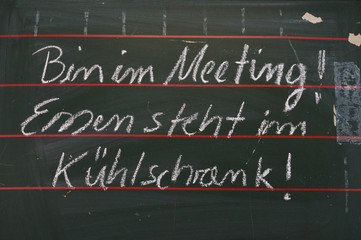 Bin im Meeting!
Essen steht im
Kühlschrank!